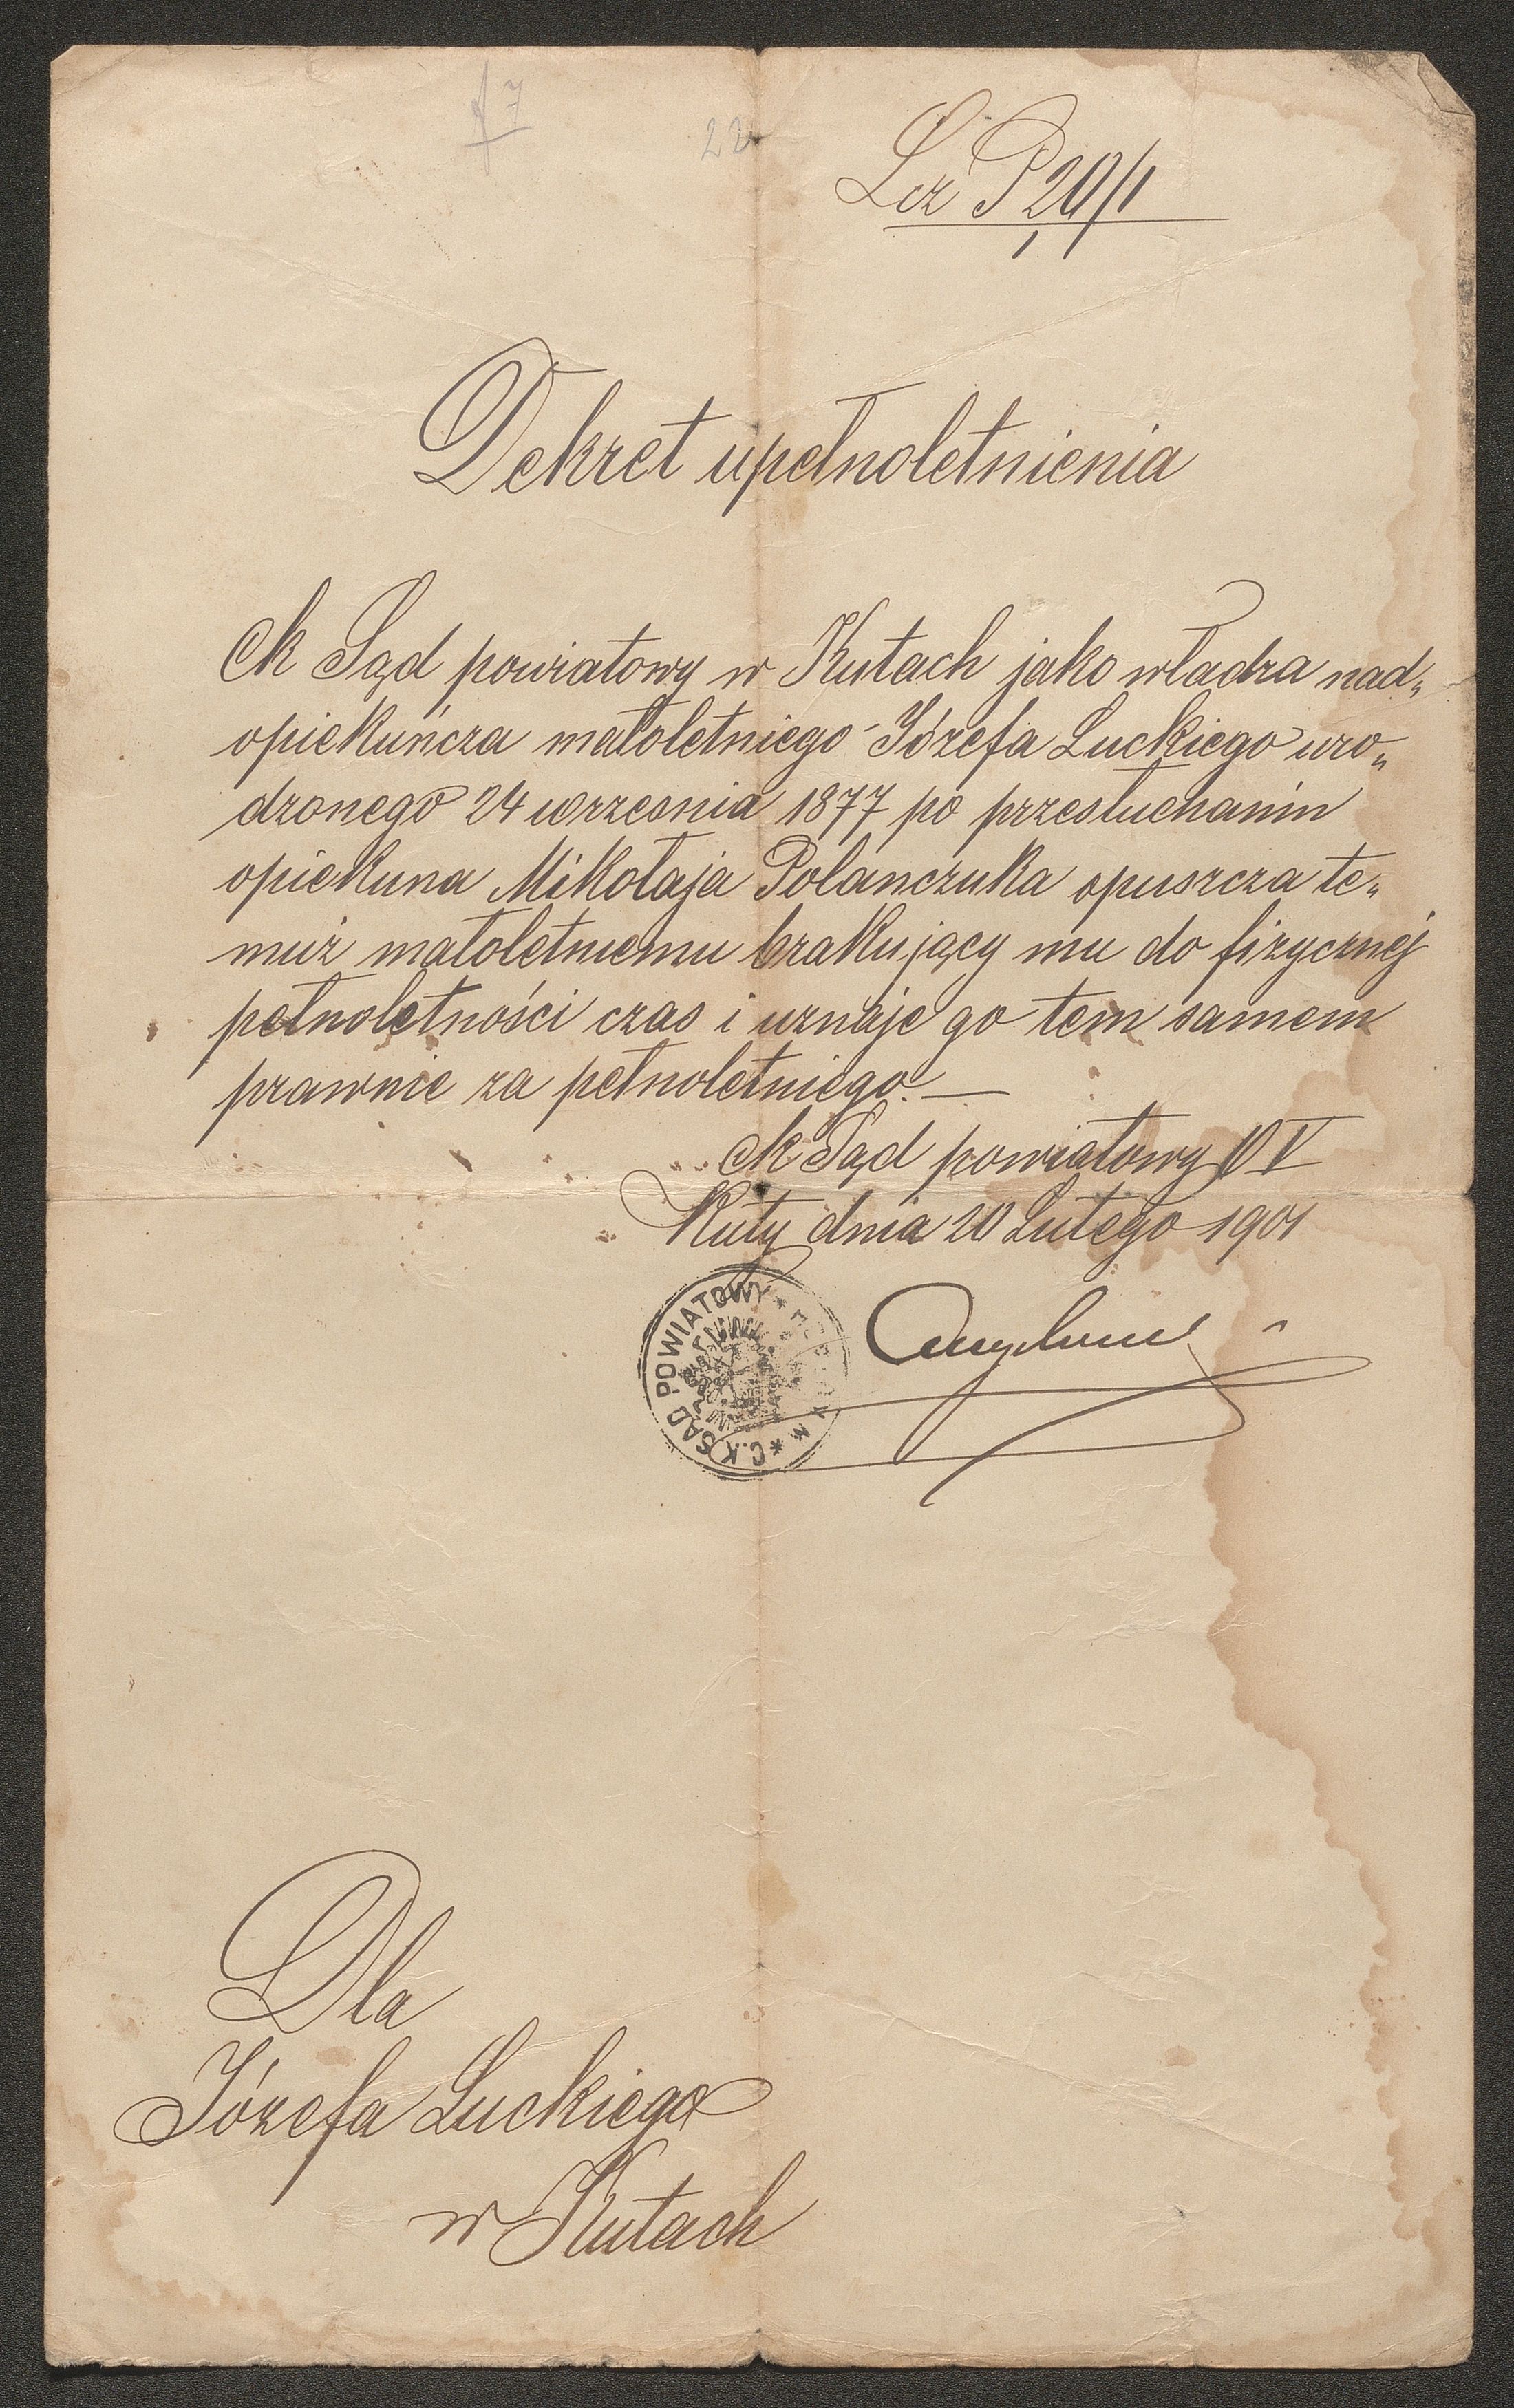 7
22
Lcz P 20/1
1
Dekret upełnoletnienia
Ck Sąd powiatowy w Kutach jako władza nad„
opiekuńcza małoletniego Józefa Luckiego uro„
dzonego 24 wrzesnia 1877 po przesłuchaniu
opiekuna Mikołaja Polanczuka opuszcza te„
muż małoletniemu brakujący mu do fizycznej
pełnoletności czas i uznaje go tem samem
prawnie za pełnoletniego. —
Ck Sąd powiatowy O V
Kuty dnia 20 Lutego 1901
* C.K. SĄD POWIATOWY *
Dla
Józefa Luckiego
w Kutach